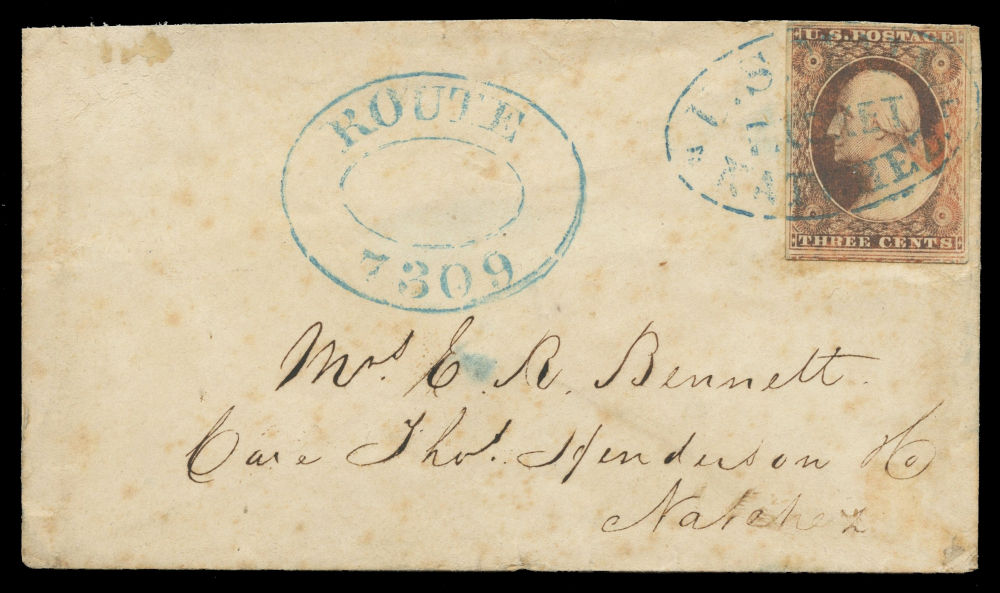 ROUTE
7309
U.S. POSTAGE
THREE CENTS
U.S.
Mrs. E. R. Bennett.
Care Thos. Henderson
Natchez